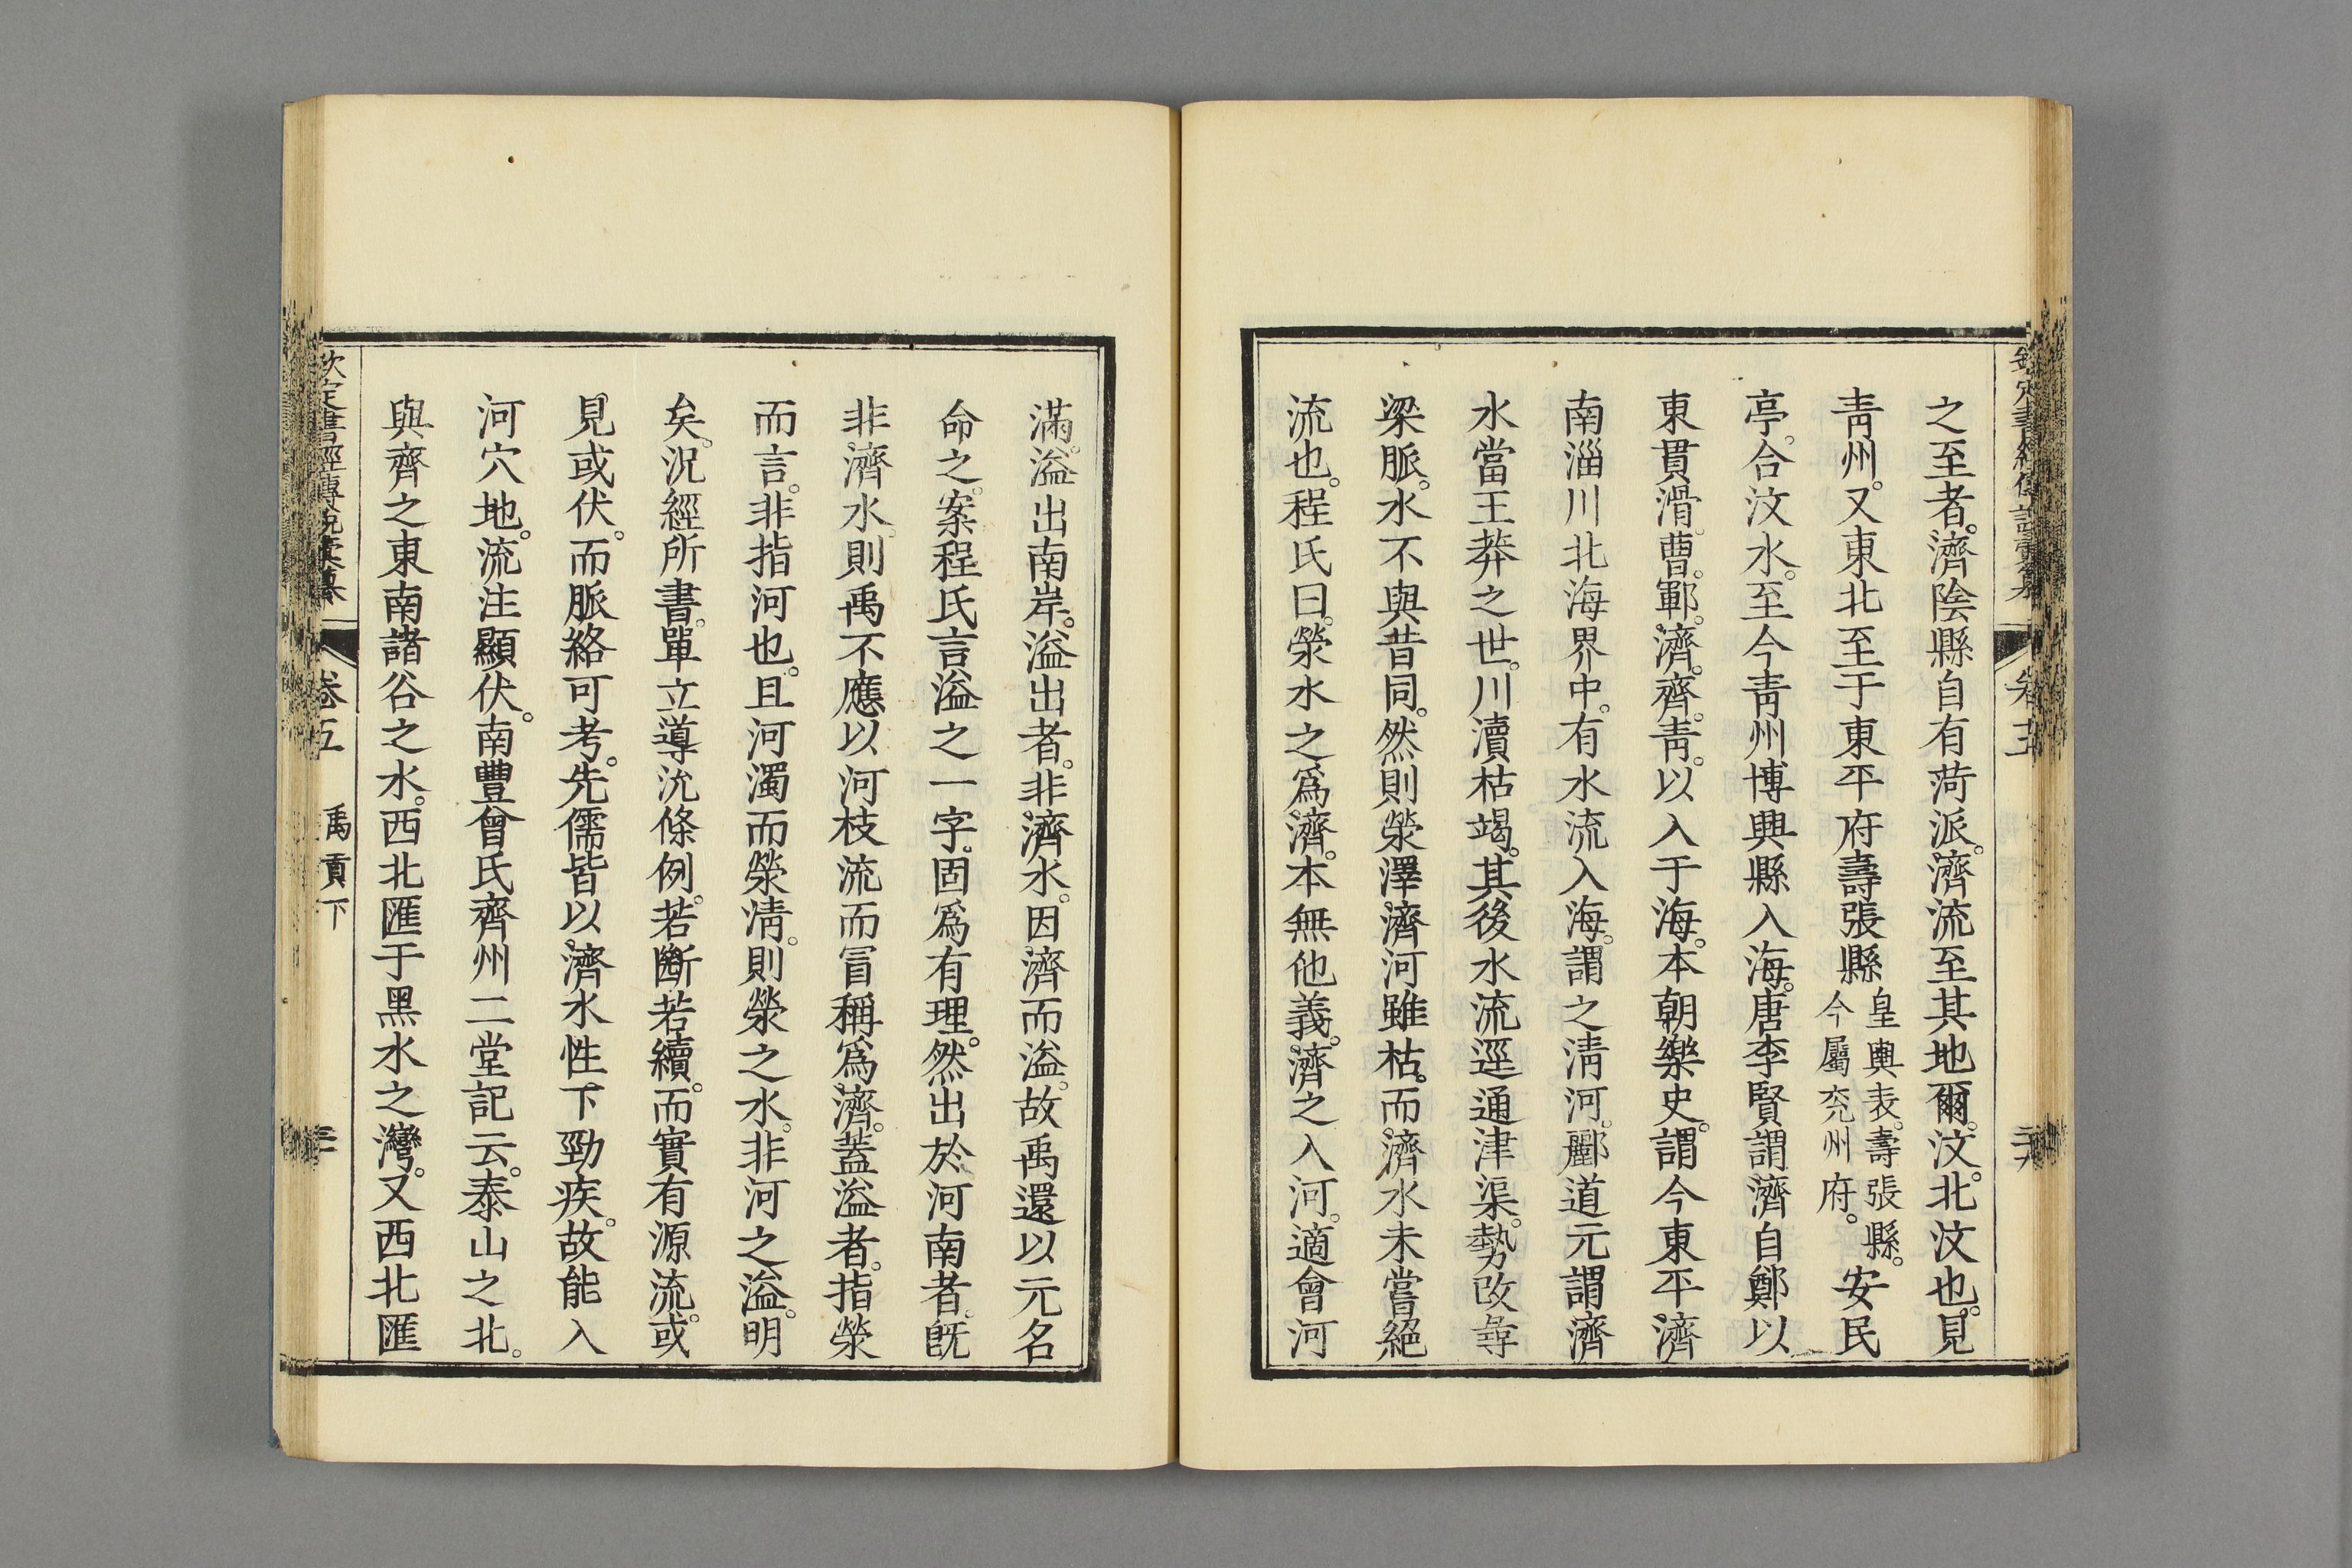 之至者。濟陰縣自有菏派。濟流至其地爾。汶。北汶也。見
青州。又東北至于東平府壽張縣皇輿表。壽張縣。今屬兖州府。安民
亭。合汶水。至今青州博興縣入海。唐李賢謂濟自鄭以
東貫滑。曹。鄆。濟。齊。青。以入于海。本朝樂史。謂今東平濟
南淄川北海界中。有水流入海。謂之淸河。酈道元謂濟
水當王莽之世。川瀆枯竭。其後水流逕通津渠。勢改尋
梁脈。水不與昔同。然則滎澤濟河雖枯。而濟水未嘗絕
流也。程氏曰。滎水之爲濟。本無他義。濟之入河。適會河
滿。溢出南岸。溢出者。非濟水。因濟而溢。故禹還以元名
命之。案程氏言溢之一字。固爲有理。然出於河南者。旣
非濟水。則禹不應以河枝流而冒稱爲濟。蓋溢者。指滎
而言。非指河也。且河濁而滎淸。則滎之水。非河之溢。明
矣。況經所書。單立導沇條例。若斷若續。而實有源流。或
見或伏。而脈絡可考。先儒皆以濟水性下勁疾。故能入
河穴地。流注顯伏。南豐曾氏齊州二堂記云。泰山之北。
與齊之東南諸谷之水。西北匯于黑水之灣。又西北匯
欽定書經傳說彙纂 卷五 禹貢下